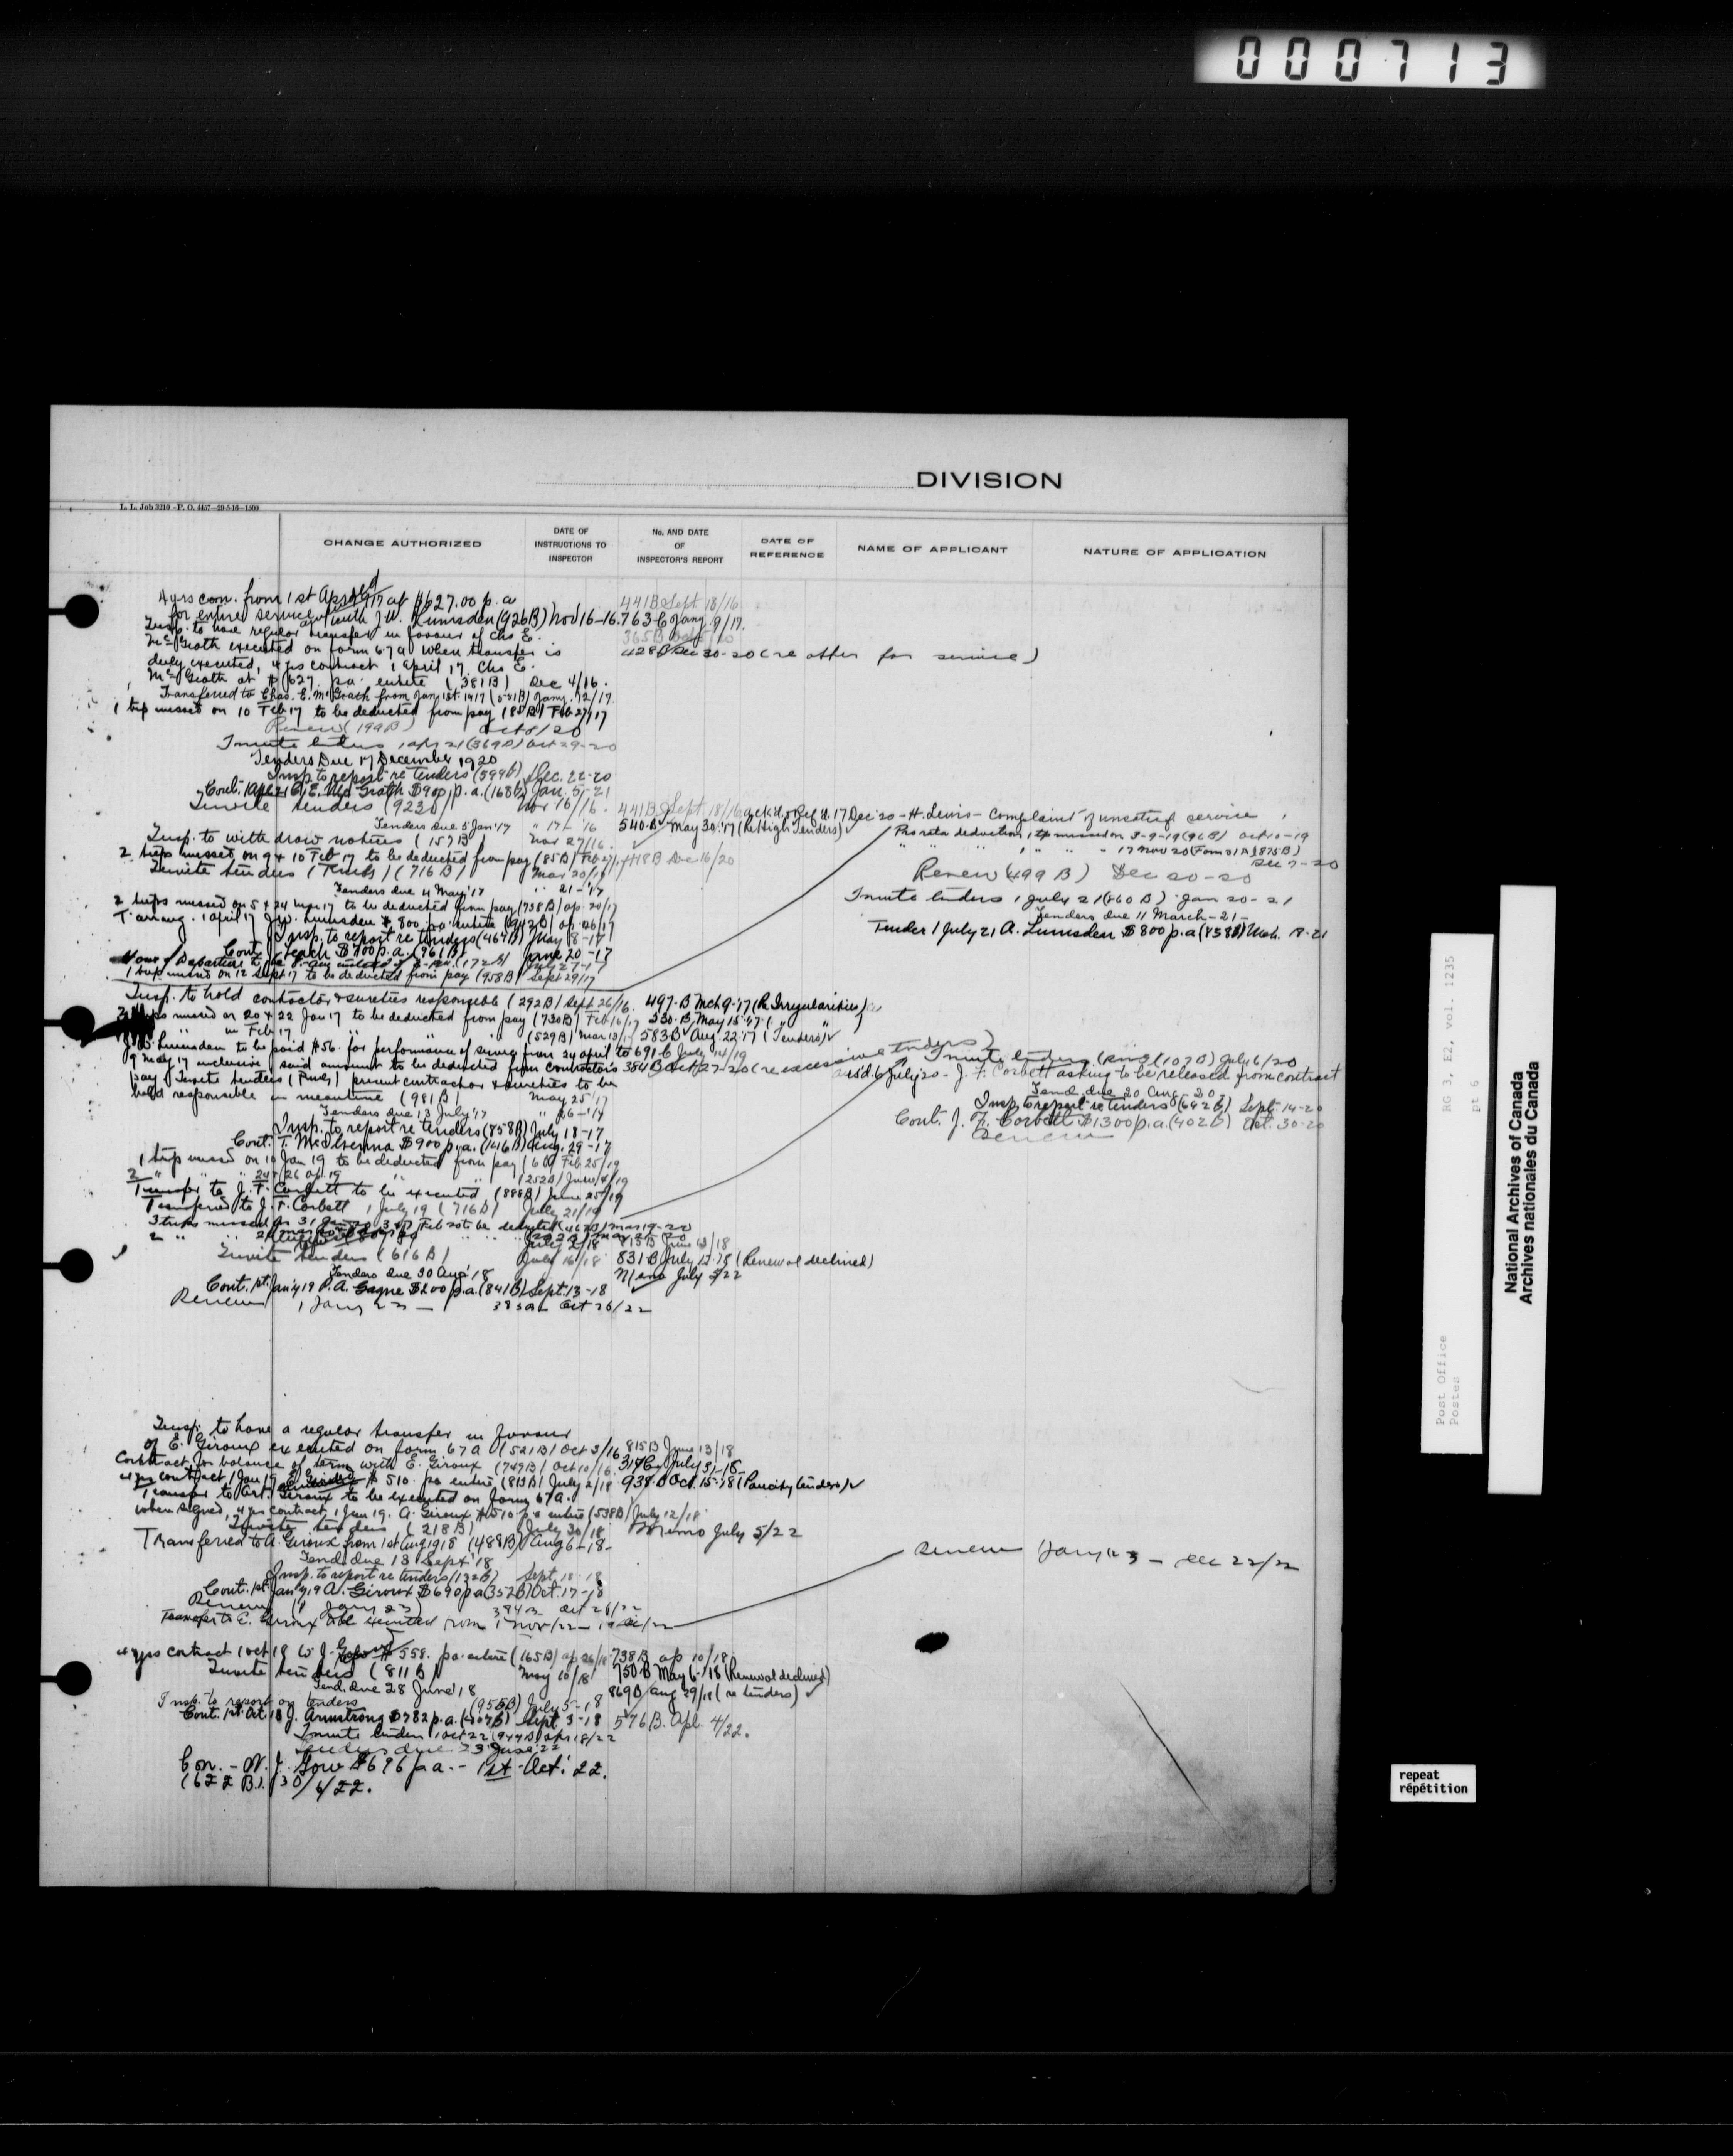 000713
DIVISION
L. L. Job 3210 - P. O. 4457—29-5-16—1500
CHANGE AUTHORIZED
DATE OF INSTRUCTIONS TO INSPECTOR
No. AND DATE OF INSPECTOR'S REPORT
DATE OF REFERENCE
NAME OF APPLICANT
NATURE OF APPLICATION
4 yrs con. from 1st April 1917 at $627.00 p.a 441B Sept 18/16
for entire service with J.W. Lumsden (926B) Nov 16-16. 763-C Jany. 9/17.
Insp. to have regular transfer in favour of Chs E.
McGrath executed on form 67a when transfer is 428B Dec 30-20 (re offer for service)
duly executed, 4 yrs contract 1 April 17, Chs E.
McGrath at $627. pa. entire (381B) Dec 4/16.
Transferred to Chas. E. McGrath from Jan 1st. 1917 (521B) Jany. 12/17.
1 trip missed on 10 Feb 17 to be deducted from pay (85B) Feb 27/17
Renew (199B) Oct 8/20
Invite tenders 1 apr 21 (369B) Oct 29-20
Tenders Due 17 December 1920
Insp. to report re tenders (599B) Dec. 22-20
Cont. 1 Apl 21 C. E. McGrath $900 p.a. (168B) Jan. 5-21
Invite tenders (923B) Nov 16/16. 441B Sept. 18/16 ack'd & Ref'd. 17 Dec '20 - H. Lewis - Complaint of unsatisf service
Tenders due 5 Jan '17 " 17 - '16 540-B May 30.'17 (Re High Tenders) Pro rata deduction 1 tp missed on 3-9-19 (96B) Oct 10-19
Insp. to withdraw notices (157B) Nov 27/16. " " " 1 " " " 17 Nov 20 (Form 31A) (875B)
2 trips missed on 9 & 10 Feb 17 to be deducted from pay (85B) Feb 27/17 448B Dec 16/20 Dec 7-20
Invite tenders (Rmds) (716B) Mar 20/17 Renew (499B) Dec 20-20
Tenders due 4 May '17 " 21-'17 Invite tenders 1 July 21 (860B) Jan 20-21
2 trips missed on 5 & 24 Mar 17 to be deducted from pay (738B) ap. 20/17 Tenders due 11 March-21-
T. arrang. 1 April 17 J.W. Lumsden $800 pa. entire (942B) ap 26/17 Tender 1 July 21 A. Lumsden $800 p.a (858B) Mch. 18-21
Insp. to report re tenders (467B) May 8-17
Cont. Leach $700 p.a. (961B) June 20-17
1 trip missed on 12 Sept 17 to be deducted from pay (958B) Sept 29/17
Insp. to hold contractor & sureties responsible (292B) Sept 26/16. 497-B Mch 9-'17 (Re Irregularities)
trips missed on 20 & 22 Jan 17 to be deducted from pay (730B) Feb 16/17 330-B May 15-'17 ( " " )
in Feb 17 (529B) Mar 13/17 583B Aug. 22-17 (Tenders)
J.W. Lumsden to be paid $56. for performance of service from 24 April to 691-C July 14/19
9 May 17 inclusive, said amount to be deducted from contractors 384B Oct 27-20 (re excessive tenders) Invite tenders (Rmds) (107B) July 6/20
pay. Invite tenders (Rmds) present contractor & sureties to be rcd. 6 July 20 - J. F. Corbett asking to be released from contract
held responsible in meantime (981B) May 25 '17 Tend. due 20 Aug - 20
Tenders due 13 July '17 " 26-'17 Insp. to report re tenders (692B) Sept. 14-20
Insp. to report re tenders (858B) July 18-17 Cont. J. F. Corbett $1300 p.a. (402B) Oct. 30-20
Cont. T. McIlhenna $900 p.a. (146B) Aug. 29-17
1 trip missed on 10 Jan 19 to be deducted from pay (6B) Feb 25/19
2 " " " 24 & 26 ap. 19 " (252B) June 4/19
Transfer to J. F. Corbett to be executed (888B) June 25/19
Transferred to J. F. Corbett 1 July 19 (716B) July 21/19
July 2/18 815B June 13/18
Invite tenders (616B) July 16/18 831B July 12-18 (Renewal declined)
Tenders due 30 Aug '18 Memo July 5/22
Cont. 1st. Jan'y 19 P. A. Gagne $200 p.a. (841B) Sept. 13-18
Renew 1 Jany 23 — 383B Oct 26/22
Insp. to have a regular transfer in favour
of E. Giroux executed on form 67a (521B) Oct 3/16 815B June 13/18
Contract for balance of term with E. Giroux (749B) Oct 10/16. 317C July 31-18
4 yrs contract 1 Jan 19 E. Giroux $510. pa entire (813B) July 2/18 938-B Oct. 15-'18 (Paucity tenders)
Transfer to Art. Giroux to be executed on form 67a.
when signed, 4 yrs contract, 1 Jan 19. A. Giroux $510 pa entire (538B) July 12/18
Invite tenders (218B) July 30/18 Memo July 5/22
Transferred to A. Giroux from 1st Aug 1918 (488B) Aug 6-18- Renew 1 Jany 23 — Dec 22/22
Tend. due 13 Sept '18
Insp. to report re tenders (132B) Sept. 18-18
Cont. 1st. Jan'y 19 A. Giroux $690 p.a (352B) Oct. 17-18
Renew (1 Jany 23) 384B Oct 26/22
Transfer to E. Giroux to be executed from 1 Nov/22
4 yrs contract 1 Oct 18 W. J. Gow $558. pa. entire (165B) ap 26/18 738B ap 10/18
Invite tenders (811B) May 10/18 750-B May 6-18 (Renewal declined)
Tend. due 28 June '18 869B Aug 29/18 (re tenders)
Insp. to report on tenders (955B) July 5-18
Cont. 1st. Oct. 18 J. Armstrong $782 p.a. (407B) Sept 3-18 576B. Apl. 4/22.
Invite tenders 1 Oct 22 (944B) Apr 18/22
Tenders due 23 June '22
Con. - W. J. Gow $696 p a. - 1st Oct. '22.
(622 B.). 30/6/22.
RG 3, E2, vol. 1235
pt 6
Post Office
Postes
National Archives of Canada
Archives nationales du Canada
repeat
répétition